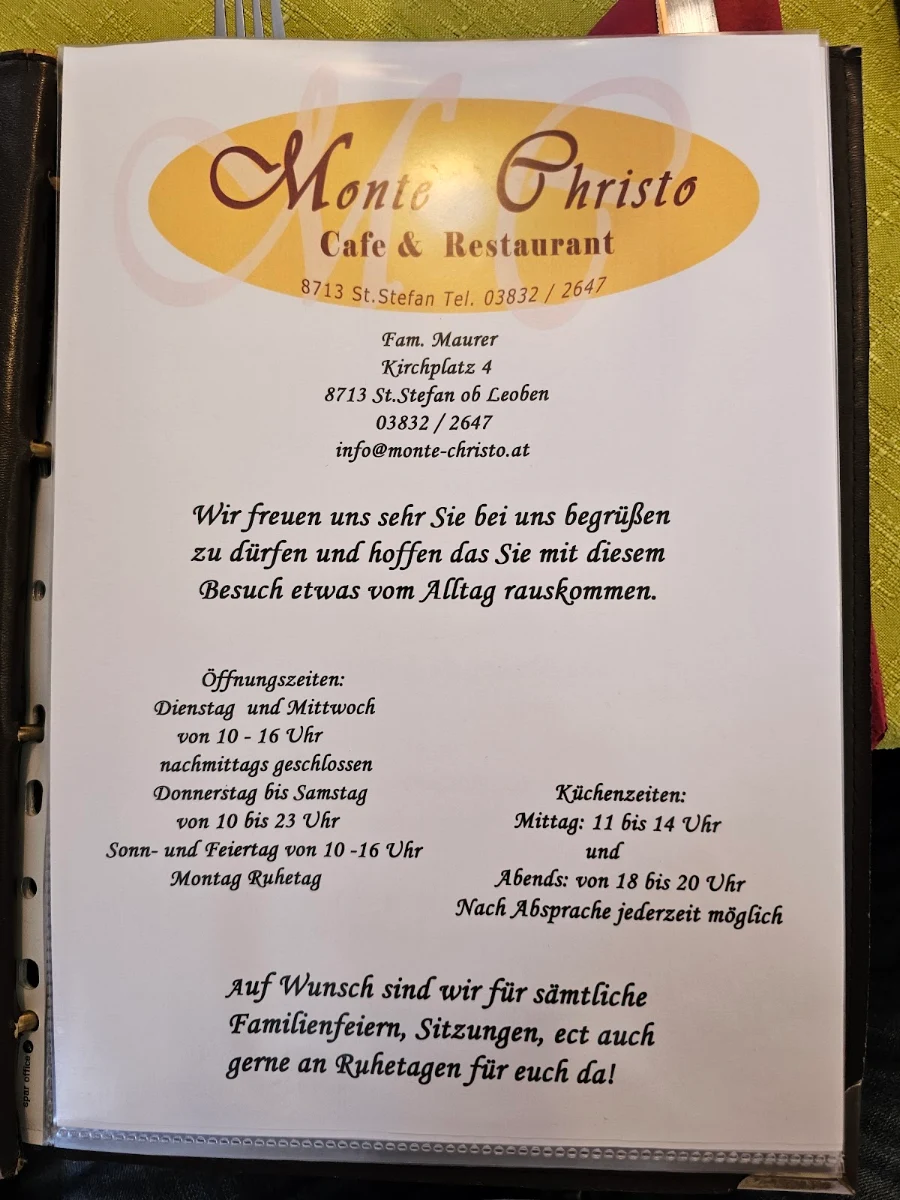 Monte Christo
Cafe & Restaurant
8713 St.Stefan Tel. 03832 / 2647
Fam. Maurer
Kirchplatz 4
8713 St.Stefan ob Leoben
03832 / 2647
info@monte-christo.at
Wir freuen uns sehr Sie bei uns begrüßen
zu dürfen und hoffen das Sie mit diesem
Besuch etwas vom Alltag rauskommen.
Öffnungszeiten:
Dienstag und Mittwoch
von 10 - 16 Uhr
nachmittags geschlossen
Donnerstag bis Samstag
von 10 bis 23 Uhr
Sonn- und Feiertag von 10 -16 Uhr
Montag Ruhetag
Küchenzeiten:
Mittag: 11 bis 14 Uhr
und
Abends: von 18 bis 20 Uhr
Nach Absprache jederzeit möglich
Auf Wunsch sind wir für sämtliche
Familienfeiern, Sitzungen, ect auch
gerne an Ruhetagen für euch da!
spar office